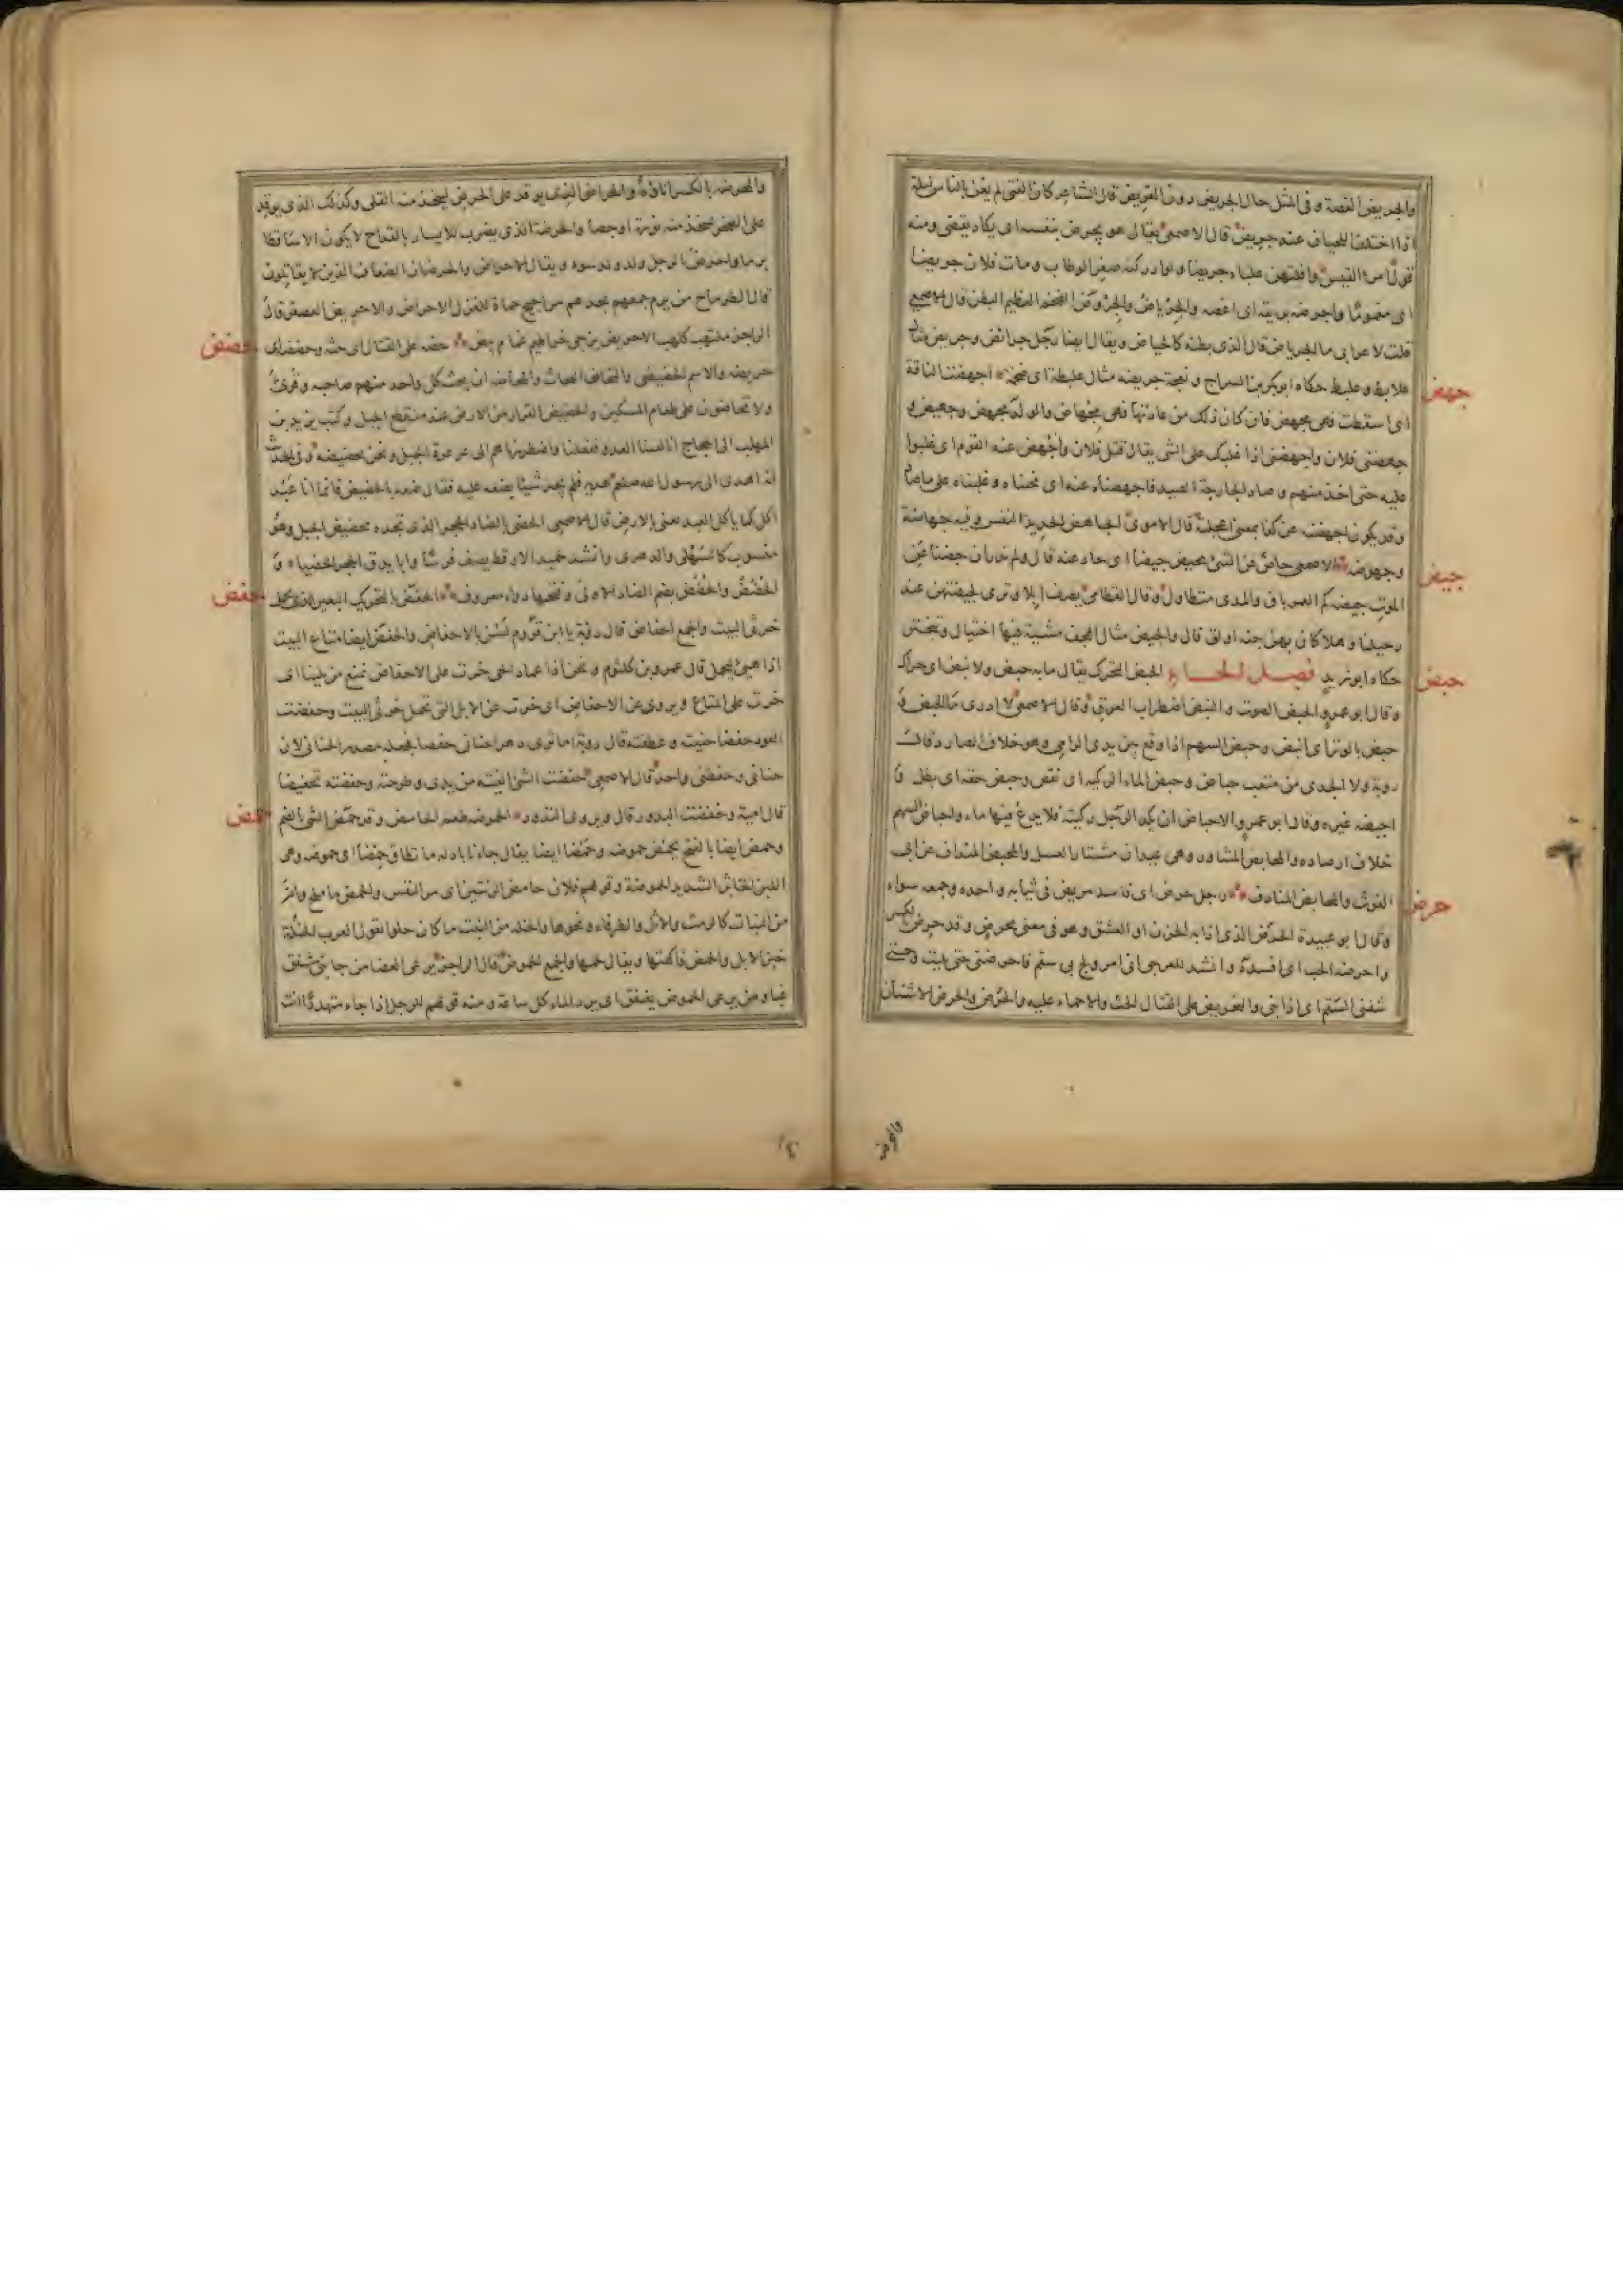 والجريض الغصة وفى المثل حال الجريض دون القريض قال الشاعر كان الفتى لم يغن بالناس ليلة
اذا اختلف اللحيان عند جريض قال الاصمعى يقال هو يجرض بنفسه اى يكاد يقضى ومنه
قول امرئ القيس وافلتهن علباء جريضا ولو ادركنه صفر الوطاب ومات فلان جريضا
اى مغموما واجرضه بريقه اى اغصه والجرياض والجرواض الضخم العظيم البطن قال الاصمعى
قلت لاعرابى ما الجرياض قال الذى بطنه كالحياض ويقال ايضا رجل جرائض وجريض مثال
علابط وعلبط حكاه ابوبكر بن السراج ونعجة جريضه مثال علبطة اى ضخمة اجهضت الناقة
جهض
اى اسقطت فهى مجهض فان كان ذلك من عادتها فهى مجهاض والولد مجهض وجهيض و
جهضنى فلان واجهضنى اذا غلبك على الشى يقال قتل فلان واجهض عنه القوم اى غلبوا
عليه حتى اخذ منهم وصاد الجارحة الصيد فاجهضناه عنه اى نحيناه وغلبناه على ماصاد
وقد يكون اجهضته عن كذا بمعنى اعجلته قال الاموى الجاهض الحديد النفس وفيه جهاضة
وجهوضه الاصمعى جاض عن الشئ يجيض جيضا اى حاد عنه قال ولم ندر ان جضنا عن
جيض
الموت جيضه كم العمر باق والمدى متطاول وقال القطامى يصف ابلا وترى لجيضتهن عند
رحيلنا وهلا كان بهن جنه اولق قال والجيض مثال الهجف مشية فيها اختيال وتبختر
حكاه ابو زيد فصل الحاء الحبض التحرك يقال ما به حبض ولا نبض اى حراك
حبض
وقال ابو عمرو الحبض الصوت والنبض اضطراب العرق وقال الاصمعى لا ادرى ما الحبض و
حبض بالوتر اى انبض وحبض السهم اذا وقع بين يدى الرامى وهو خلاف الصارد قال
روبة ولا الجدى من متعب حباض وحبض ماء الركيه اى نقص وحبض حقه اى بطل و
احبضه غيره وقال ابو عمرو الاحباض ان يكد الرجل ركيته فلا يدع فيها ماء واحباض السهم
خلاف ارصاده والمحابض المشاور وهى عيدان مشتار العسل والمحبض المنداف عن ابى
الغوث والمحابض المنادف رجل حرض اى فاسد مريض فى ثيابه واحده وجمعه سواء
حرض
وقال ابو عبيدة الحرض الذى اذابه الحزن او العشق وهو فى معنى محرض وقد حرض بالكسر
واحرضه الحب اى افسده وانشد للعرجى انى امرؤ لج بى سقم فاحرضنى حتى بليت وحتى
شفنى السقم اى اذابنى والتحريض على القتال الحث والاحماء عليه والحرض والحرض الاشنان
والمحرضه
والمحرضه بالكسر اناؤه والحراض الذى يوقد على الحرض ليتخذ منه القلى وكذلك الذى يوقد
على الصخر ليتخذ منه نورة او جصا والحرضة الذى يضرب للايسار بالقداح لا يكون الا ساقطا
برما واحرض الرجل ولد ولد سوء ويقال الاحراض والحرضان الضعاف الذين لا يقاتلون
قال الطرماح من يرم جمعهم يجدهم مراجيح حماة للعزل الاحراض والاحريض العصفر قال
الراجز ملتهب كلهب الاحريض يزجى خراطيم غمام بيض حضه على القتال اى حثه وحضضه اى
حضض
حرضه والاسم الحضيضى والتحاض التحاث والمحاضه ان يحث كل واحد منهم صاحبه وقرئ
ولا تحاضون على طعام المسكين والحضيض القرار من الارض عند منقطع الجبل وكتب يزيد بن
المهلب الى الحجاج انا لقينا العدو ففعلنا واضطررناهم الى عرعرة الجبل ونحن بحضيضه وفى الحديث
انه اهدى الى رسول الله صلعم هدية فلم يجد شيئا يضعه عليه فقال ضعه بالحضيض فانما انا عبد
اكل كما ياكل العبد يعنى بالارض قال الاصمعى الحضى بالضاد الحجر الذى تجده بحضيض الجبل وهو
منسوب كالسهلى والدهرى وانشد لحميد الارقط يصف فرسا وابا يدق الحجر الحضيا و
الحضض والحضض بضم الضاد الاولى وفتحها دواء معروف الحفض بالتحريك البعير الذى يحمل
حفض
خرثى البيت والجمع احفاض قال روبة يا ابن قروم لسن بالاحفاض والحفض ايضا متاع البيت
اذا هيئ ليحمل قال عمرو بن كلثوم ونحن اذا عماد الحى خرت على الاحفاض نمنع من يلينا اى
خرت على المتاع ويروى عن الاحفاض اى خرت عن الابل التى تحمل خرثى البيت وحفضت
العود حفضا حنيته وعطفته قال روبة اما ترى دهرا حنانى حفضا فجعله مصدر الحنانى لان
حنانى وحفضنى واحد قال الاصمعى حفضت الشئ القيته من يدى وطرحته وحفضته تحفيضا
قال امية وحفضت البدور قال ويروى النذور الحموضه طعم الحامض وقد حمض الشى بالضم
حمض
وحمض ايضا بالفتح يحمض حموضه وحمضا ايضا يقال جاءنا بادله ما تطاق حمضا اى حموضه وهى
اللبن الخاثر الشديد الحموضة وقولهم فلان حامض الرئتين اى مر النفس والحمض ما ملح وامر
من النبات كالرمث والاثل والطرفاء ونحوها والخلة من النبت ما كان حلوا تقول العرب الخلة
خبز الابل والحمض فاكهتها ويقال لحمها والجمع الحموض قال الراجز يرعى الغضا من جانبى مشفق
غبا ومن يرعى الحموض يغفق اى يرد الماء كل ساعة ومنه قولهم للرجل اذا جاء متهددا انت